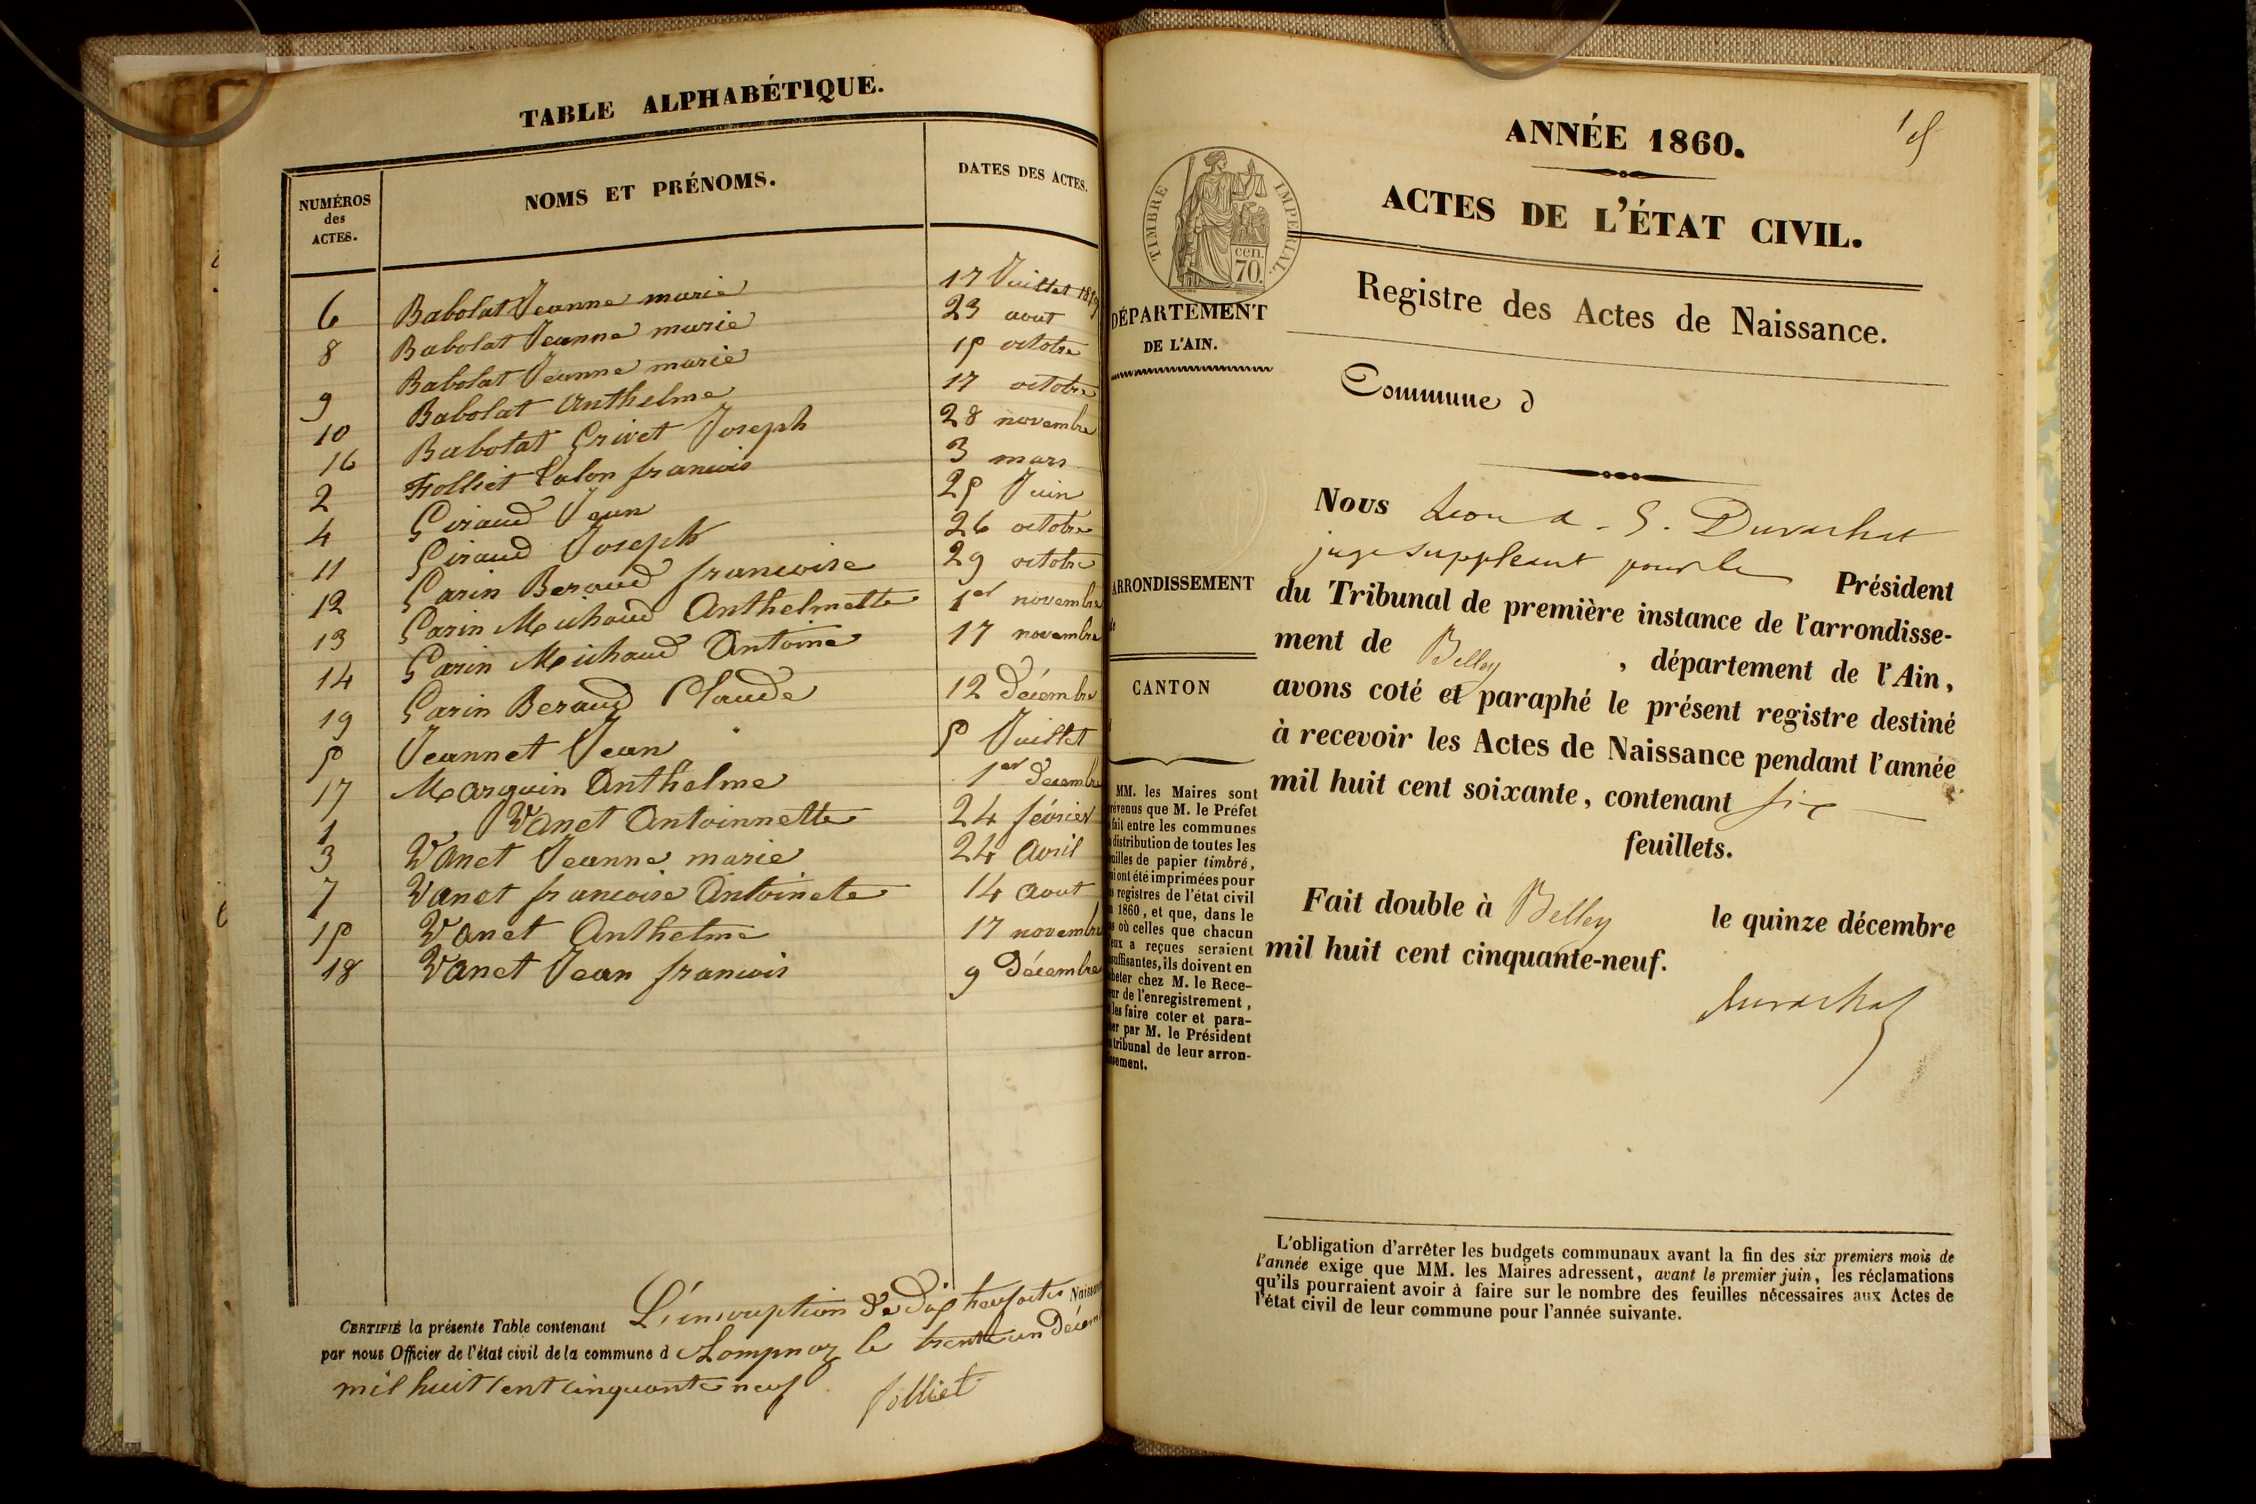 TABLE ALPHABÉTIQUE.
NUMÉROS des ACTES. NOMS ET PRÉNOMS. DATES DES ACTES.
6 Babolat Jeanne marie 17 Juillet 1859
8 Babolat Jeanne marie 23 aout
9 Babolat Jeanne marie 15 octobre
10 Babolat Anthelme 17 octobre
16 Babolat Grivet Joseph 28 novembre
2 Folliet Calon francois 3 mars
4 Giraud Jean 25 Juin
11 Giraud Joseph 26 octobre
12 Garin Beraud francoise 29 octobre
13 Garin Michaud Anthelmette 1er novembre
14 Garin Michaud Antoine 17 novembre
19 Garin Beraud Claude 12 Décembre
5 Jeannet Jean 5 Juillet
17 Marquin Anthelme 1er Decembre
1 Vanet Antoinnette 24 février
3 Vanet Jeanne marie 24 Avril
7 Vanet francoise Antoinete 14 aout
15 Vanet Anthelme 17 novembre
18 Vanet Jean francois 9 Décembre
CERTIFIÉ la présente Table contenant L'inscription De Dix neuf actes
par nous Officier de l'état civil de la commune d Lompnaz le trente un Décem
mil huit Cent Cinquante neuf. folliet
1er
ANNÉE 1860.
ACTES DE L'ÉTAT CIVIL.
TIMBRE IMPÉRIAL.
cen.
70.
Registre des Actes de Naissance.
DÉPARTEMENT
DE L'AIN.
Commune d
Nous Leon a. G. Durachat
juge suppleant pour le Président
du Tribunal de première instance de l'arrondisse-
ment de Belley, département de l'Ain,
avons coté et paraphé le présent registre destiné
à recevoir les Actes de Naissance pendant l'année
mil huit cent soixante, contenant six
feuillets.
Fait double à Belley le quinze décembre
mil huit cent cinquante-neuf.
Durachat
ARRONDISSEMENT
CANTON
MM. les Maires sont
révenus que M. le Préfet
fait entre les communes
distribution de toutes les
euilles de papier timbré,
ui ont été imprimées pour
s registres de l'état civil
1860, et que, dans le
s où celles que chacun
eux a reçues seraient
suffisantes, ils doivent en
cheter chez M. le Rece-
eur de l'enregistrement,
les faire coter et para-
er par M. le Président
tribunal de leur arron-
ssement.
L'obligation d'arrêter les budgets communaux avant la fin des six premiers mois de
l'année exige que MM. les Maires adressent, avant le premier juin, les réclamations
qu'ils pourraient avoir à faire sur le nombre des feuilles nécessaires aux Actes de
l'état civil de leur commune pour l'année suivante.